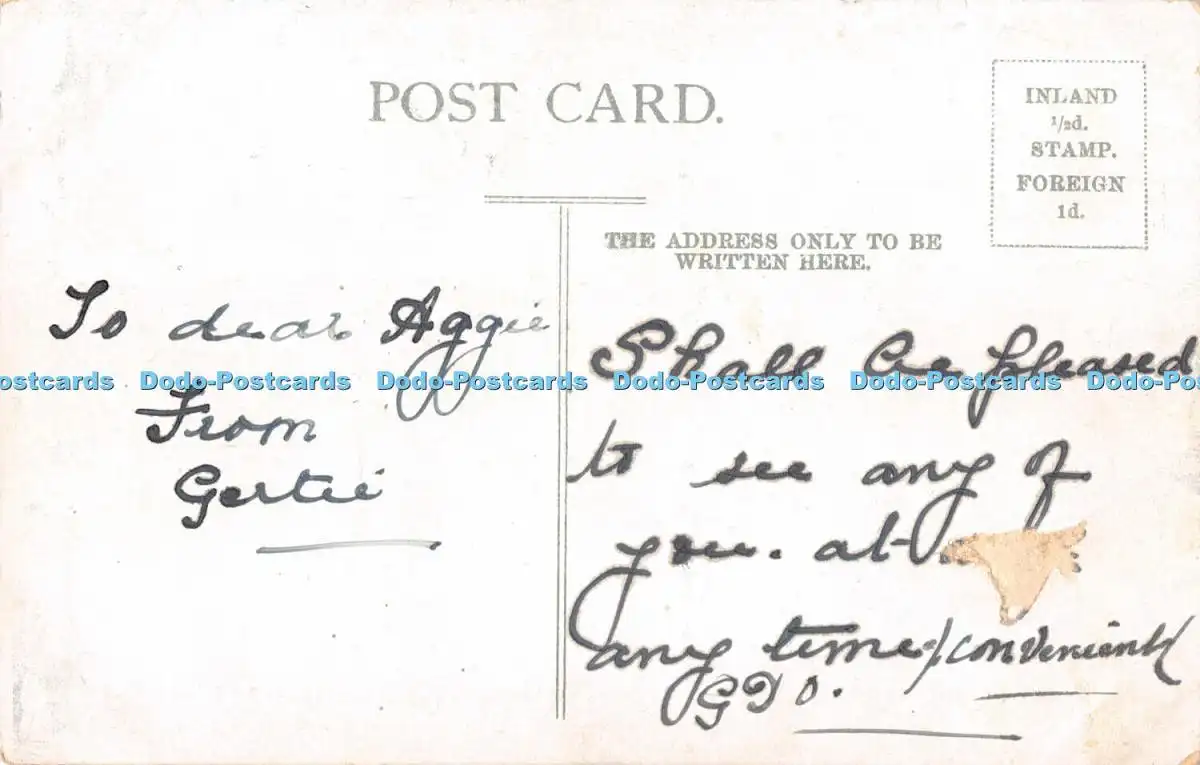 POST CARD.
INLAND
1/2d.
STAMP.
FOREIGN
1d.
THE ADDRESS ONLY TO BE
WRITTEN HERE.
To dear Aggie
From
Gertie
Shall be pleased
to see any of
you. at
any time (convenient)
G D O.
ostcards Dodo-Postcards Dodo-Postcards Dodo-Postcards Dodo-Postcards Dodo-P